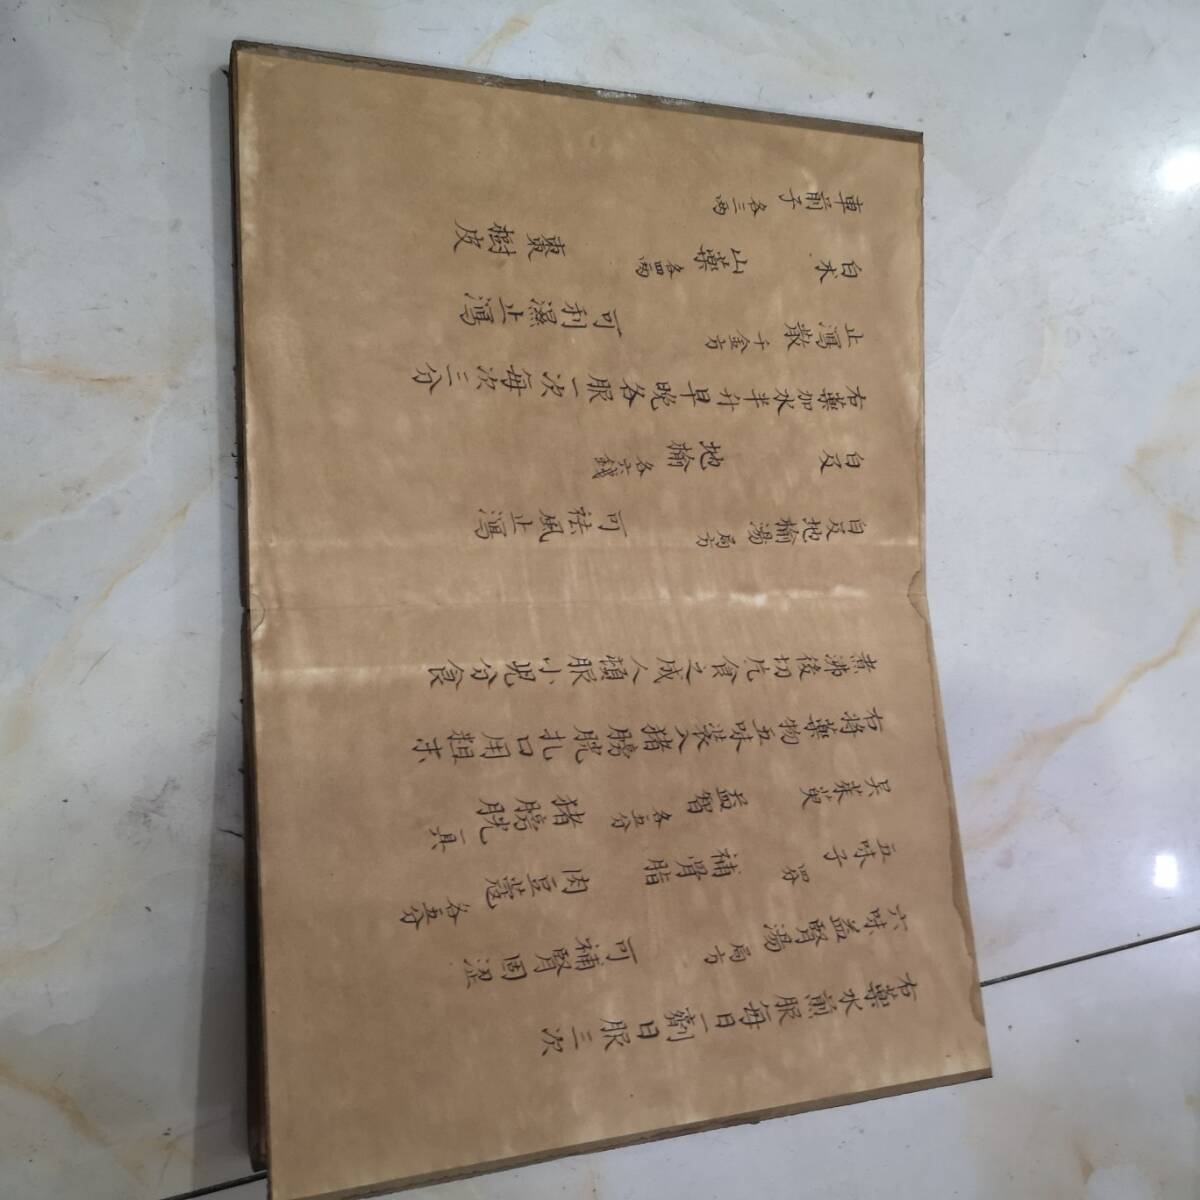 右藥水煎服每日一劑日服三次
六味益腎湯 局方 可補腎固澀
五味子 四分 補骨脂 肉豆蔻 各五分
吳茱萸 益智 各五分 猪膀胱 一具
右將藥物五味裝入猪膀胱扎口用粗末
煮沸後切片食之成人頓服小兒分食
白及地榆湯 局方 可祛風止瀉
白及 地榆 各六錢
右藥加水半升早晚各服一次每次三分
止瀉散 千金方 可利濕止瀉
白术 山藥 各四兩 棗樹皮
車前子 各三兩